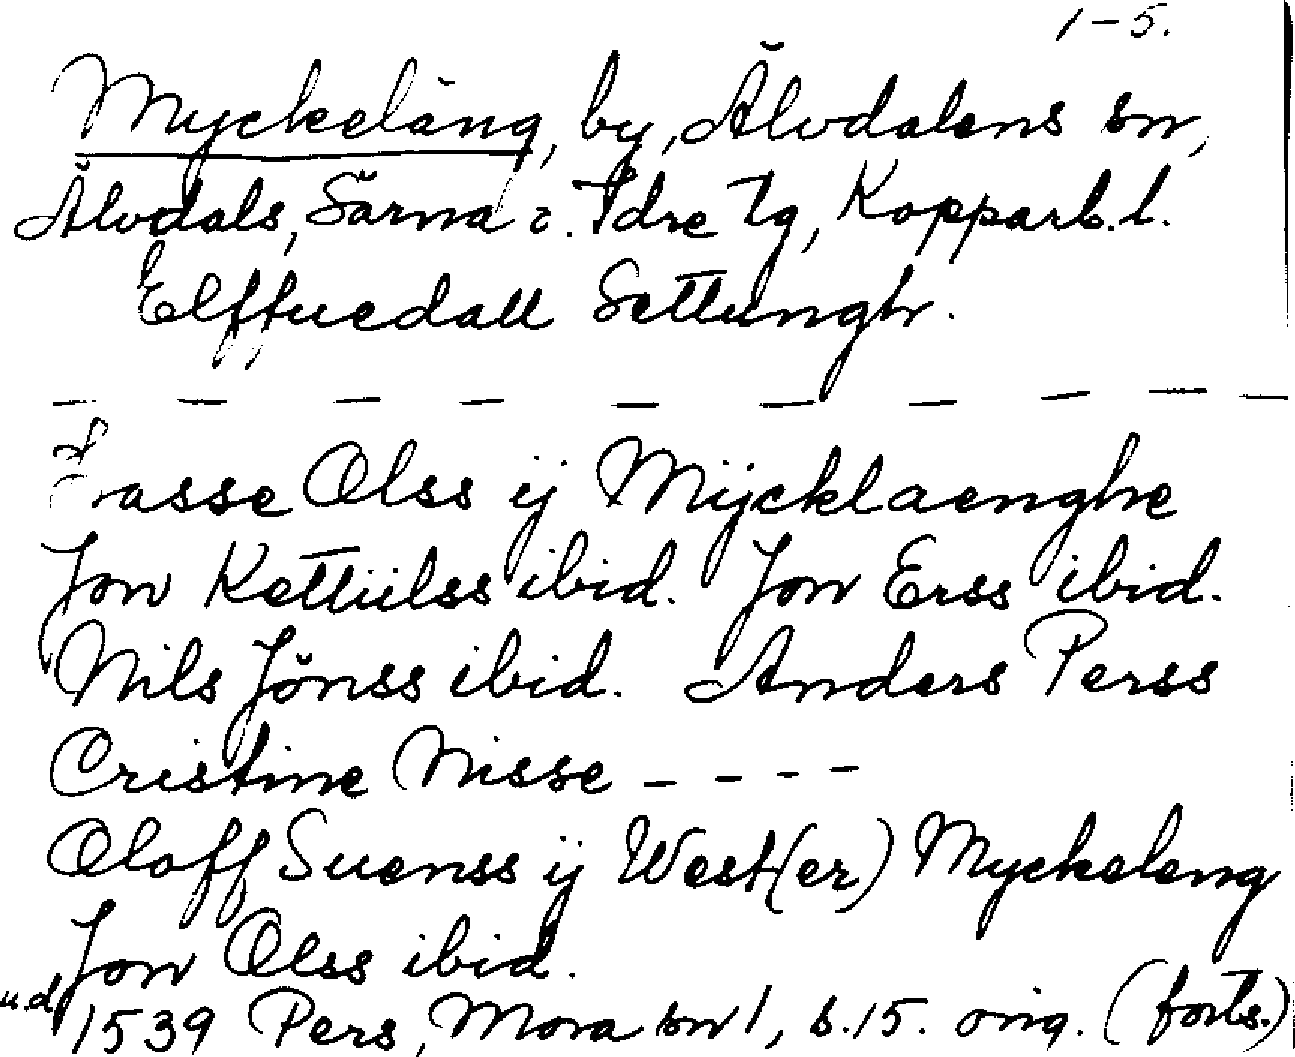 1-5.
Myckeläng, by, Älvdalens sn,
Älvdals, Särna o. Idre tg, Kopparb. l.
Elffuedall Settungh.
— — — — — — — — —
Lasse Olss ij Mÿcklaenghe
Jon Kettiilss ibid. Jon Erss ibid.
Nils Jönss ibid. Anders Perss
Cristine Nisse - - - -
Oloff Suenss ij West(er) Myckeleng
Jon Olss ibid.
u.d. 1539 Pers, Mora sn 1, s. 15. orig. (forts.)